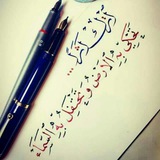 أترك أثراً...
تحكي بِهِ الأرض و تحتفل بِهِ السَّماء